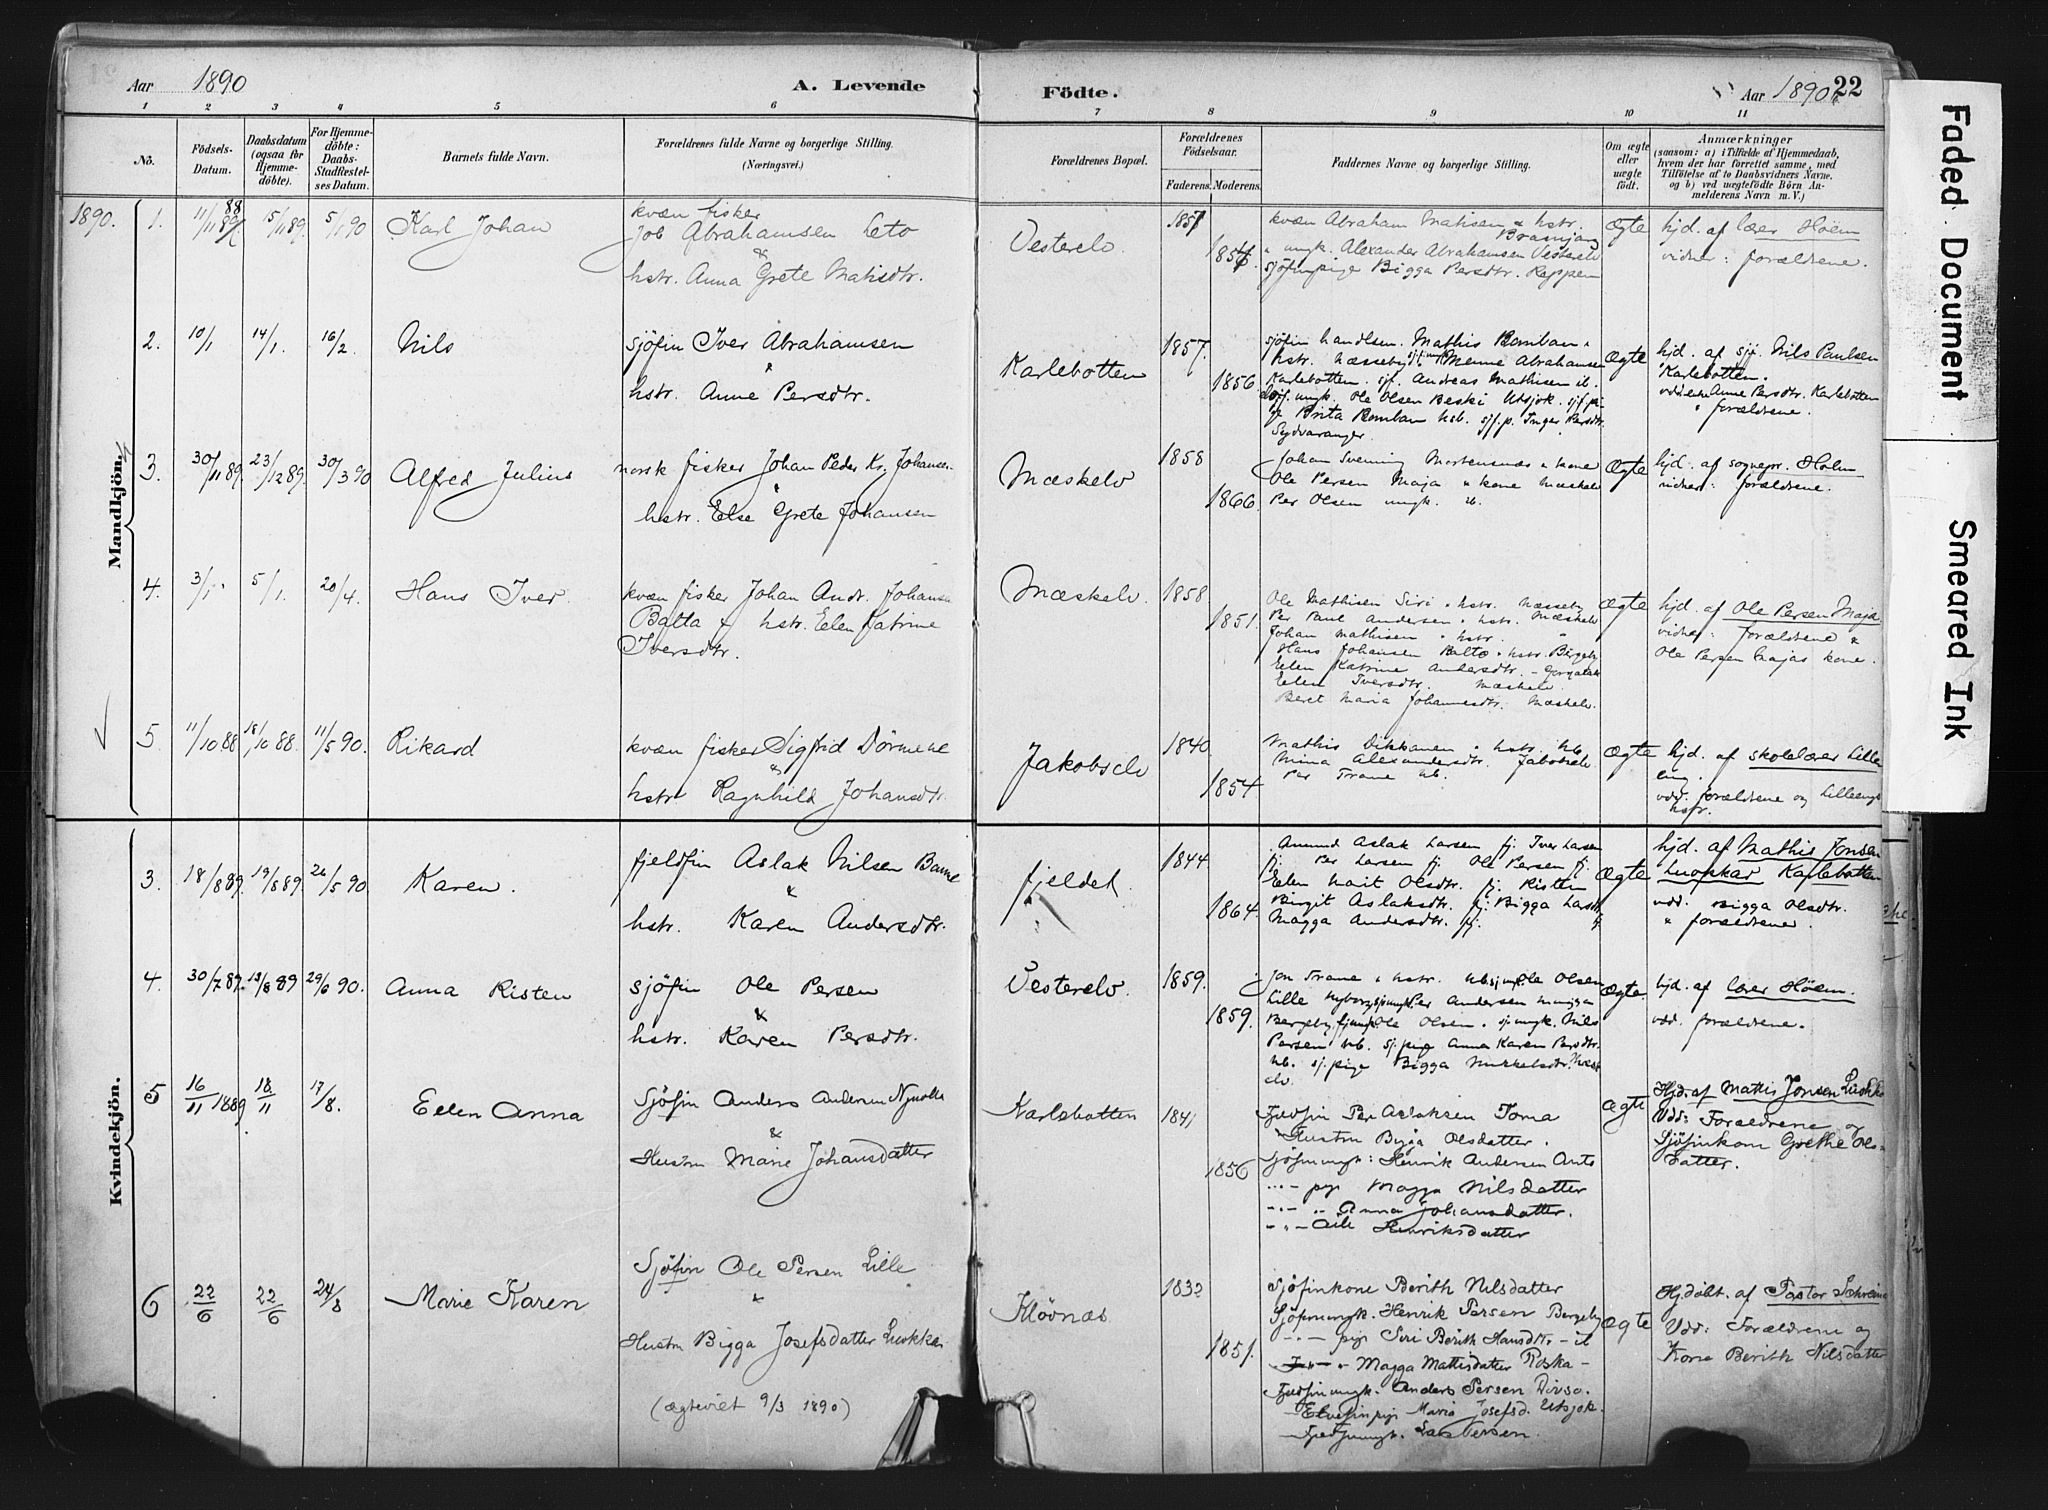 Aar 1890
A. Levende
Födte.
Aar 1890
22
1 2 3 4 5 6 7 8 9 10 11
No.
Födsels-Datum.
Daabsdatum (ogsaa for Hjemme-döbte).
For Hjemme-döbte: Daabs-Stadfæstel-ses Datum.
Barnets fulde Navn.
Forældrenes fulde Navne og borgerlige Stilling.
(Næringsvei.)
Forældrenes Bopæl.
Forældrenes Födselsaar.
Faderens. Moderens.
Faddernes Navne og borgerlige Stilling.
Om ægte eller uægte födt.
Anmærkninger
(saasom: a) i Tilfælde af Hjemmedaab,
hvem der har forrettet samme, med
Tilföielse af to Daabsvidners Navne.
og b) ved uægtefödte Börn An-
melderens Navn m. V.)
Mandkjön.
1890.
1. 11/11 88 15/11 89. 5/1 90 Karl Johan
kvæn fisker
Job Abrahamsen Leto
&
hstr. Anna Grete Matisdtr.
Vesterelv
1857
1856.
kvæn Abraham Matisen & hstr.
Brasnjav
ungk. Alexander Abrahamsen Vesterelv
sjöfinpige Bigga Persdtr. Reppen
Ægte
hjd. af lær Höem
vidner: forældrene.
2. 10/1 14/1. 16/2. Nils
sjöfin Iver Abrahamsen
&
hstr. Anne Persdtr.
Karlebotten
1857.
1856.
sjöfin handlsm. Mathis Bomban
hstr. Næsseby sjf. ungk. Menne Abrahamsen
Karlebotten. sjf. Andreas Mathisen ib.
sjf. ungk. Ole Olsen Beski Utsjok. sjf. pi-
ge Brita Bomban hsb. sjf. p. Inger Persdtr.
Sydvaranger.
Ægte
hjd. af sjf. Nils Paulsen
Karlebotten.
vidner Anne Persdtr. Karlebotten
" forældrene.
3. 30/11 89. 23/12 89. 30/3 90 Alfred Julius
norsk fisker Johan Peder Kr. Johansen
&
hstr. Else Grete Johansen
Mæskelv
1858
1866.
Johan Svenning Mortensnæs & kone
Ole Persen Maja & kone Mæskelv
Per Olsen ungk. ib.
Ægte
hjd. af sognepr. Holm
vidner: forældrene.
4. 3/1. 5/1. 20/4. Hans Iver.
kvæn fisker Johan Andr. Johansen
Balta & hstr. Eelen Katrine
Iversdtr.
Mæskelv.
1858
1851.
Ole Mathisen Siri & hstr. Næsseby
Per Paul Andersen & hstr. Mæskelv
Johan Mathisen & hstr. "
Hans Johansen Balto & hstr. Bergeby
Eelen Katrine Andersdtr.
Eelen Iversdtr. Mæskelv.
Beret Maria Johannesdtr. Mæskelv.
Ægte
hjd. af Ole Persen Maja
vidner: forældrene &
Ole Persen Majas kone.
5. 11/10 88 18/10 88. 11/5 90. Rikard
kvæn fisker Sigfrid Dörmene
&
hstr. Ragnhild Johansdtr.
Jakobselv
1840.
1854
Mathis Dikkanen & hstr. Nb.
Mina Alexandersdtr. Jakobselv
Per Trane Nb.
Ægte
hjd. af skolelærer Lille-
eng.
vdd. forældrene og Lilleengs
hstr.
Kvindekjön.
3. 18/8 89. 19/8 89. 26/5 90. Karen.
fjeldfin Aslak Nilsen Banne
&
hstr. Karen Andersdtr.
fjeldet.
1844
1864.
Amund Aslak Larsen fj. Iver Larsen
fj. Per Larsen fj. Ole Persen fj.
Eelen Marit Olsdtr. fj. Risten
Birgit Aslaksdtr. fj. Bigga Larsdtr.
Magga Andersdtr. fj. fj.
Ægte
hjd. af Mathis Jonsen
Luoskar Karlebotten
vdd. Bigga Olsdtr.
" forældrene.
4. 30/7 89. 18/8 89 29/6 90. Anna Risten
sjöfin Ole Persen
&
hstr. Karen Persdtr.
Vesterelv.
1859.
1859.
Jon Trane & hstr. Nb. sj. ungk. Ole Olsen
Lille Nyborg sj. ungk. Per Andersen
Bergeby, fj. ungk. Ole Olsen. sj. ungk. Nils
Persen Nb. sj. pige Anna Karen Persdtr.
Nb. sj. pige Bigga Mikkelsdtr. Mæsk-
elv.
Ægte.
hjd. af lær Höem.
vdd. forældrene.
5 16/11 1889. 18/11 17/8. Eelen Anna
Sjöfin Anders Andersen
&
Hustru Marie Johansdatter
Karlebotten
1841
1856
Fjeldfin Per Aslaksen Toma
Hustru Bigga Olsdatter.
Sjöfinungk: Henrik Andersen Ants
" - pige Magga Nilsdatter
" - " Anna Johansdatter.
" - " Aile Henriksdatter
Ægte
Hjd. af Mattis Jonsen
Vdd: Forældrene og
Sjöfinkone Grethe Ols-
datter.
6 22/6 22/6 24/8 Marie Karen
Sjöfin Ole Persen Lille
&
Hustru Bigga Josefsdatter Luokka
(ægteviet 9/3 1890)
Klövnæs
1832
1851.
Sjöfinkone Berith Nilsdatter
Sjöfinungk. Henrik Persen Bergeby
" - pige Siri Berith Hansdtr. - il
" - " Magga Mattisdatter Roska -
Fjeldfinungk. Anders Persen Divso.
- Elvefinpige Maria Josefsd. Utsjok.
- Fjeldfinungk. Lars Persen.
Ægte
Hjdöbt. af Pastor Schreiner
Vdd: Forældrene og
Kone Berith Nilsdatter
Faded Document
Smeared Ink